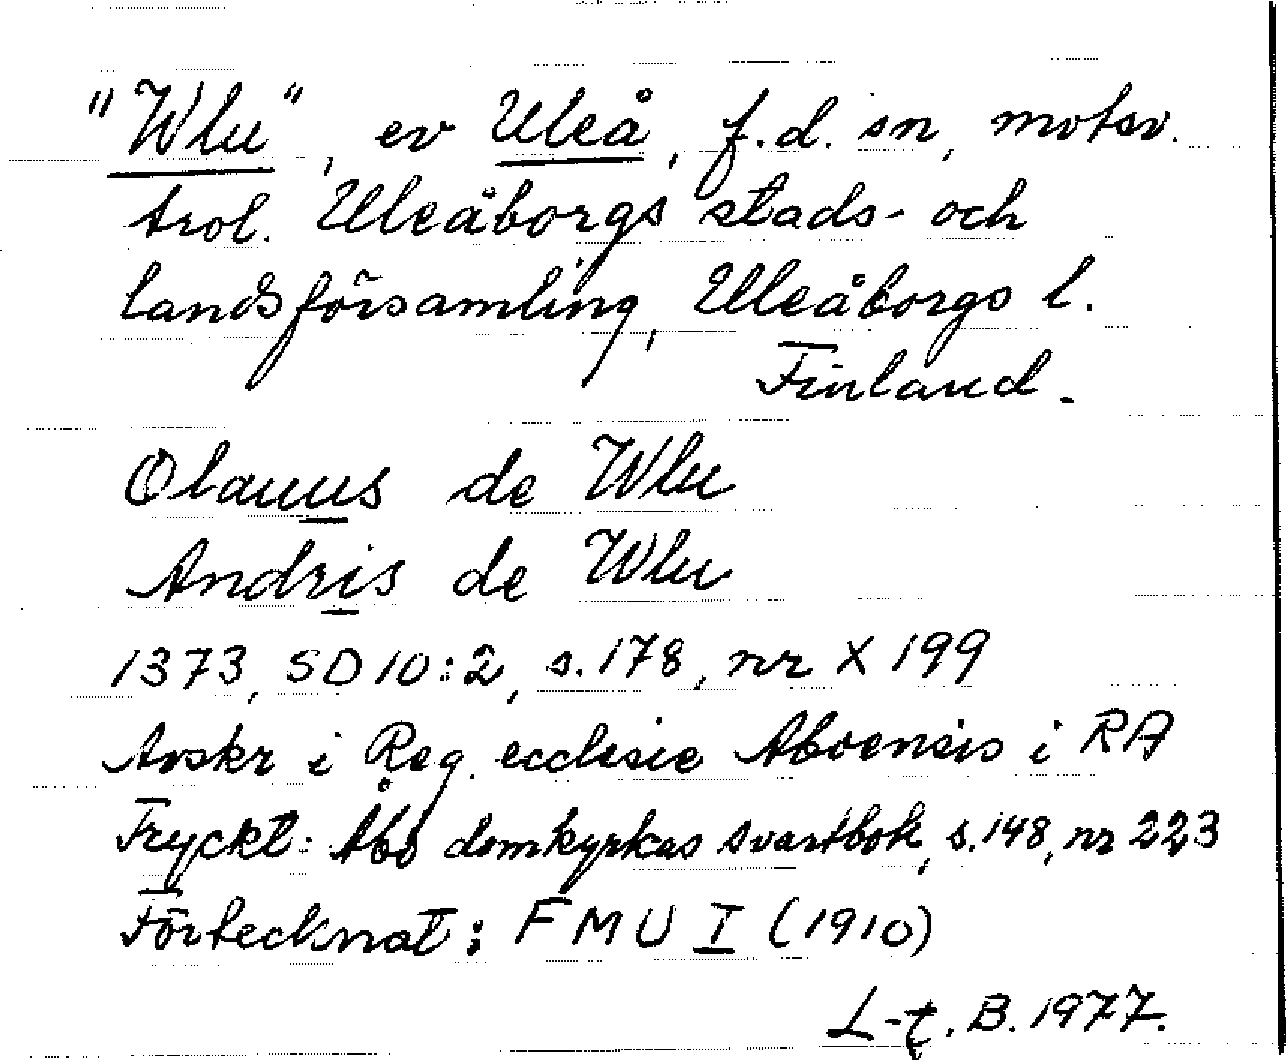 "Wlu", ev Uleå, f.d. sn, motsv.
trol. Uleåborgs stads- och
landsförsamling, Uleåborgs l.
Finland.
Olauus de Wlu
Andris de Wlu
1373, SD 10:2, s. 178, nr X 199
Avskr i Reg. ecclesie Aboensis i RA
Tryckt: Åbo domkyrkas svartbok, s. 148, nr 223
Förtecknat: FMU I (1910)
L-g. B. 1977.